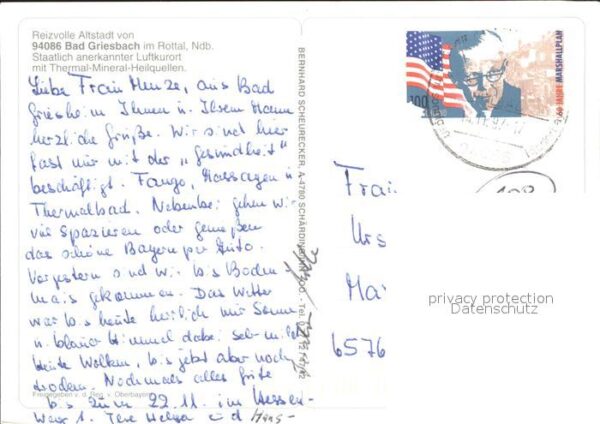 Reizvolle Altstadt von
94086 Bad Griesbach im Rottal, Ndb.
Staatlich anerkannter Luftkurort
mit Thermal-Mineral-Heilquellen.
Liebe Frau Menze, aus Bad
Griesheim Ihnen u Ihrem Manne
herzliche Grüße. Wir sind hier
fast nur mit der „Gesundheit"
beschäftigt. Fango, Massagen u
Thermalbad. Nebenbei gehen wir
viel spazieren oder genießen
das schöne Bayern per Auto.
Vorgestern sind wir bis Boden
mais gekommen. Das Wetter
war bis heute herrlich mit Sonne
u blauer Himmel dabei sehr mild
heute Wolken, bis jetzt aber noch
trocken. Nochmals alles Gute
bis zum 22.11. im Hessen-
Ihre Helga und Hans-
Freigegeben v. d. Reg. v. Oberbayern
BERNHARD SCHEURECKER, A-4780 SCHÄRDING/INN
100
50 JAHRE MARSHALLPLAN
Frau
Urs
Ma
6576
privacy protection
Datenschutz